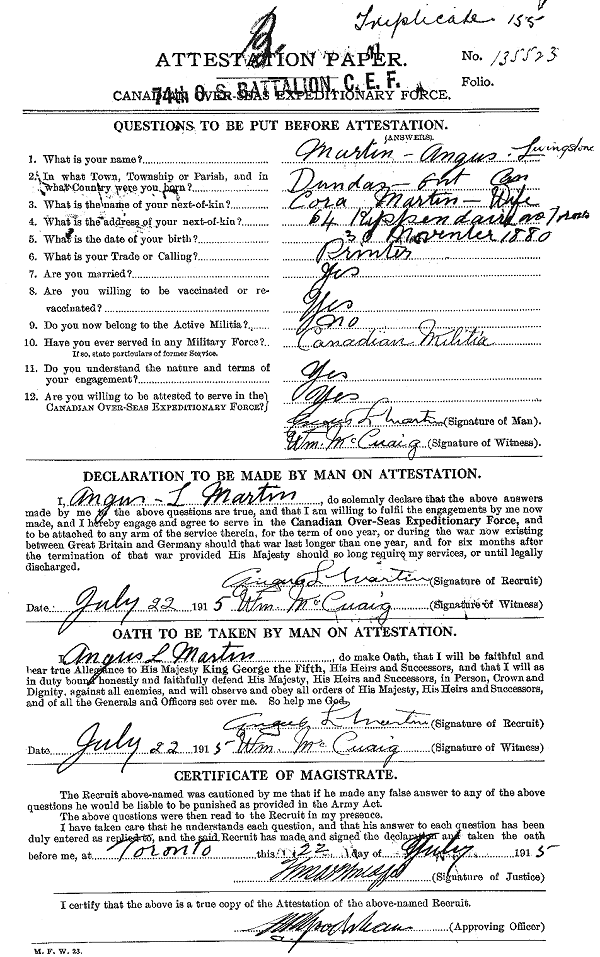 Triplicate 155
ATTESTATION PAPER.
No. 135523
74th O. S. BATTALION, C. E. F.
Folio.
CANADIAN OVER-SEAS EXPEDITIONARY FORCE.
QUESTIONS TO BE PUT BEFORE ATTESTATION.
(ANSWERS).
1. What is your name? Martin - Angus - Livingstone
2. In what Town, Township or Parish, and in what Country were you born? Dundas - Ont Can
3. What is the name of your next-of-kin? Cora Martin - Wife
4. What is the address of your next-of-kin? 64
5. What is the date of your birth? 1880
6. What is your Trade or Calling? Printer
7. Are you married? Yes
8. Are you willing to be vaccinated or re-
vaccinated? Yes
9. Do you now belong to the Active Militia? No
10. Have you ever served in any Military Force? Canadian Militia
If so, state particulars of former Service.
11. Do you understand the nature and terms of
your engagement? Yes
12. Are you willing to be attested to serve in the
CANADIAN OVER-SEAS EXPEDITIONARY FORCE? Yes
Angus L Martin (Signature of Man).
Wm. McCuaig (Signature of Witness).
DECLARATION TO BE MADE BY MAN ON ATTESTATION.
I, Angus - L Martin, do solemnly declare that the above answers
made by me to the above questions are true, and that I am willing to fulfil the engagements by me now
made, and I hereby engage and agree to serve in the Canadian Over-Seas Expeditionary Force, and
to be attached to any arm of the service therein, for the term of one year, or during the war now existing
between Great Britain and Germany should that war last longer than one year, and for six months after
the termination of that war provided His Majesty should so long require my services, or until legally
discharged.
Angus L Martin (Signature of Recruit)
Date July 22 1915 Wm. McCuaig (Signature of Witness)
OATH TO BE TAKEN BY MAN ON ATTESTATION.
I, Angus L Martin, do make Oath, that I will be faithful and
bear true Allegiance to His Majesty King George the Fifth, His Heirs and Successors, and that I will as
in duty bound honestly and faithfully defend His Majesty, His Heirs and Successors, in Person, Crown and
Dignity, against all enemies, and will observe and obey all orders of His Majesty, His Heirs and Successors,
and of all the Generals and Officers set over me. So help me God.
Angus L Martin (Signature of Recruit)
Date July 22 1915 Wm. McCuaig (Signature of Witness)
CERTIFICATE OF MAGISTRATE.
The Recruit above-named was cautioned by me that if he made any false answer to any of the above
questions he would be liable to be punished as provided in the Army Act.
The above questions were then read to the Recruit in my presence.
I have taken care that he understands each question, and that his answer to each question has been
duly entered as replied to, and the said Recruit has made and signed the declaration and taken the oath
before me, at Toronto this 22 day of July 1915
(Signature of Justice)
I certify that the above is a true copy of the Attestation of the above-named Recruit.
(Approving Officer)
M. F. W. 23.